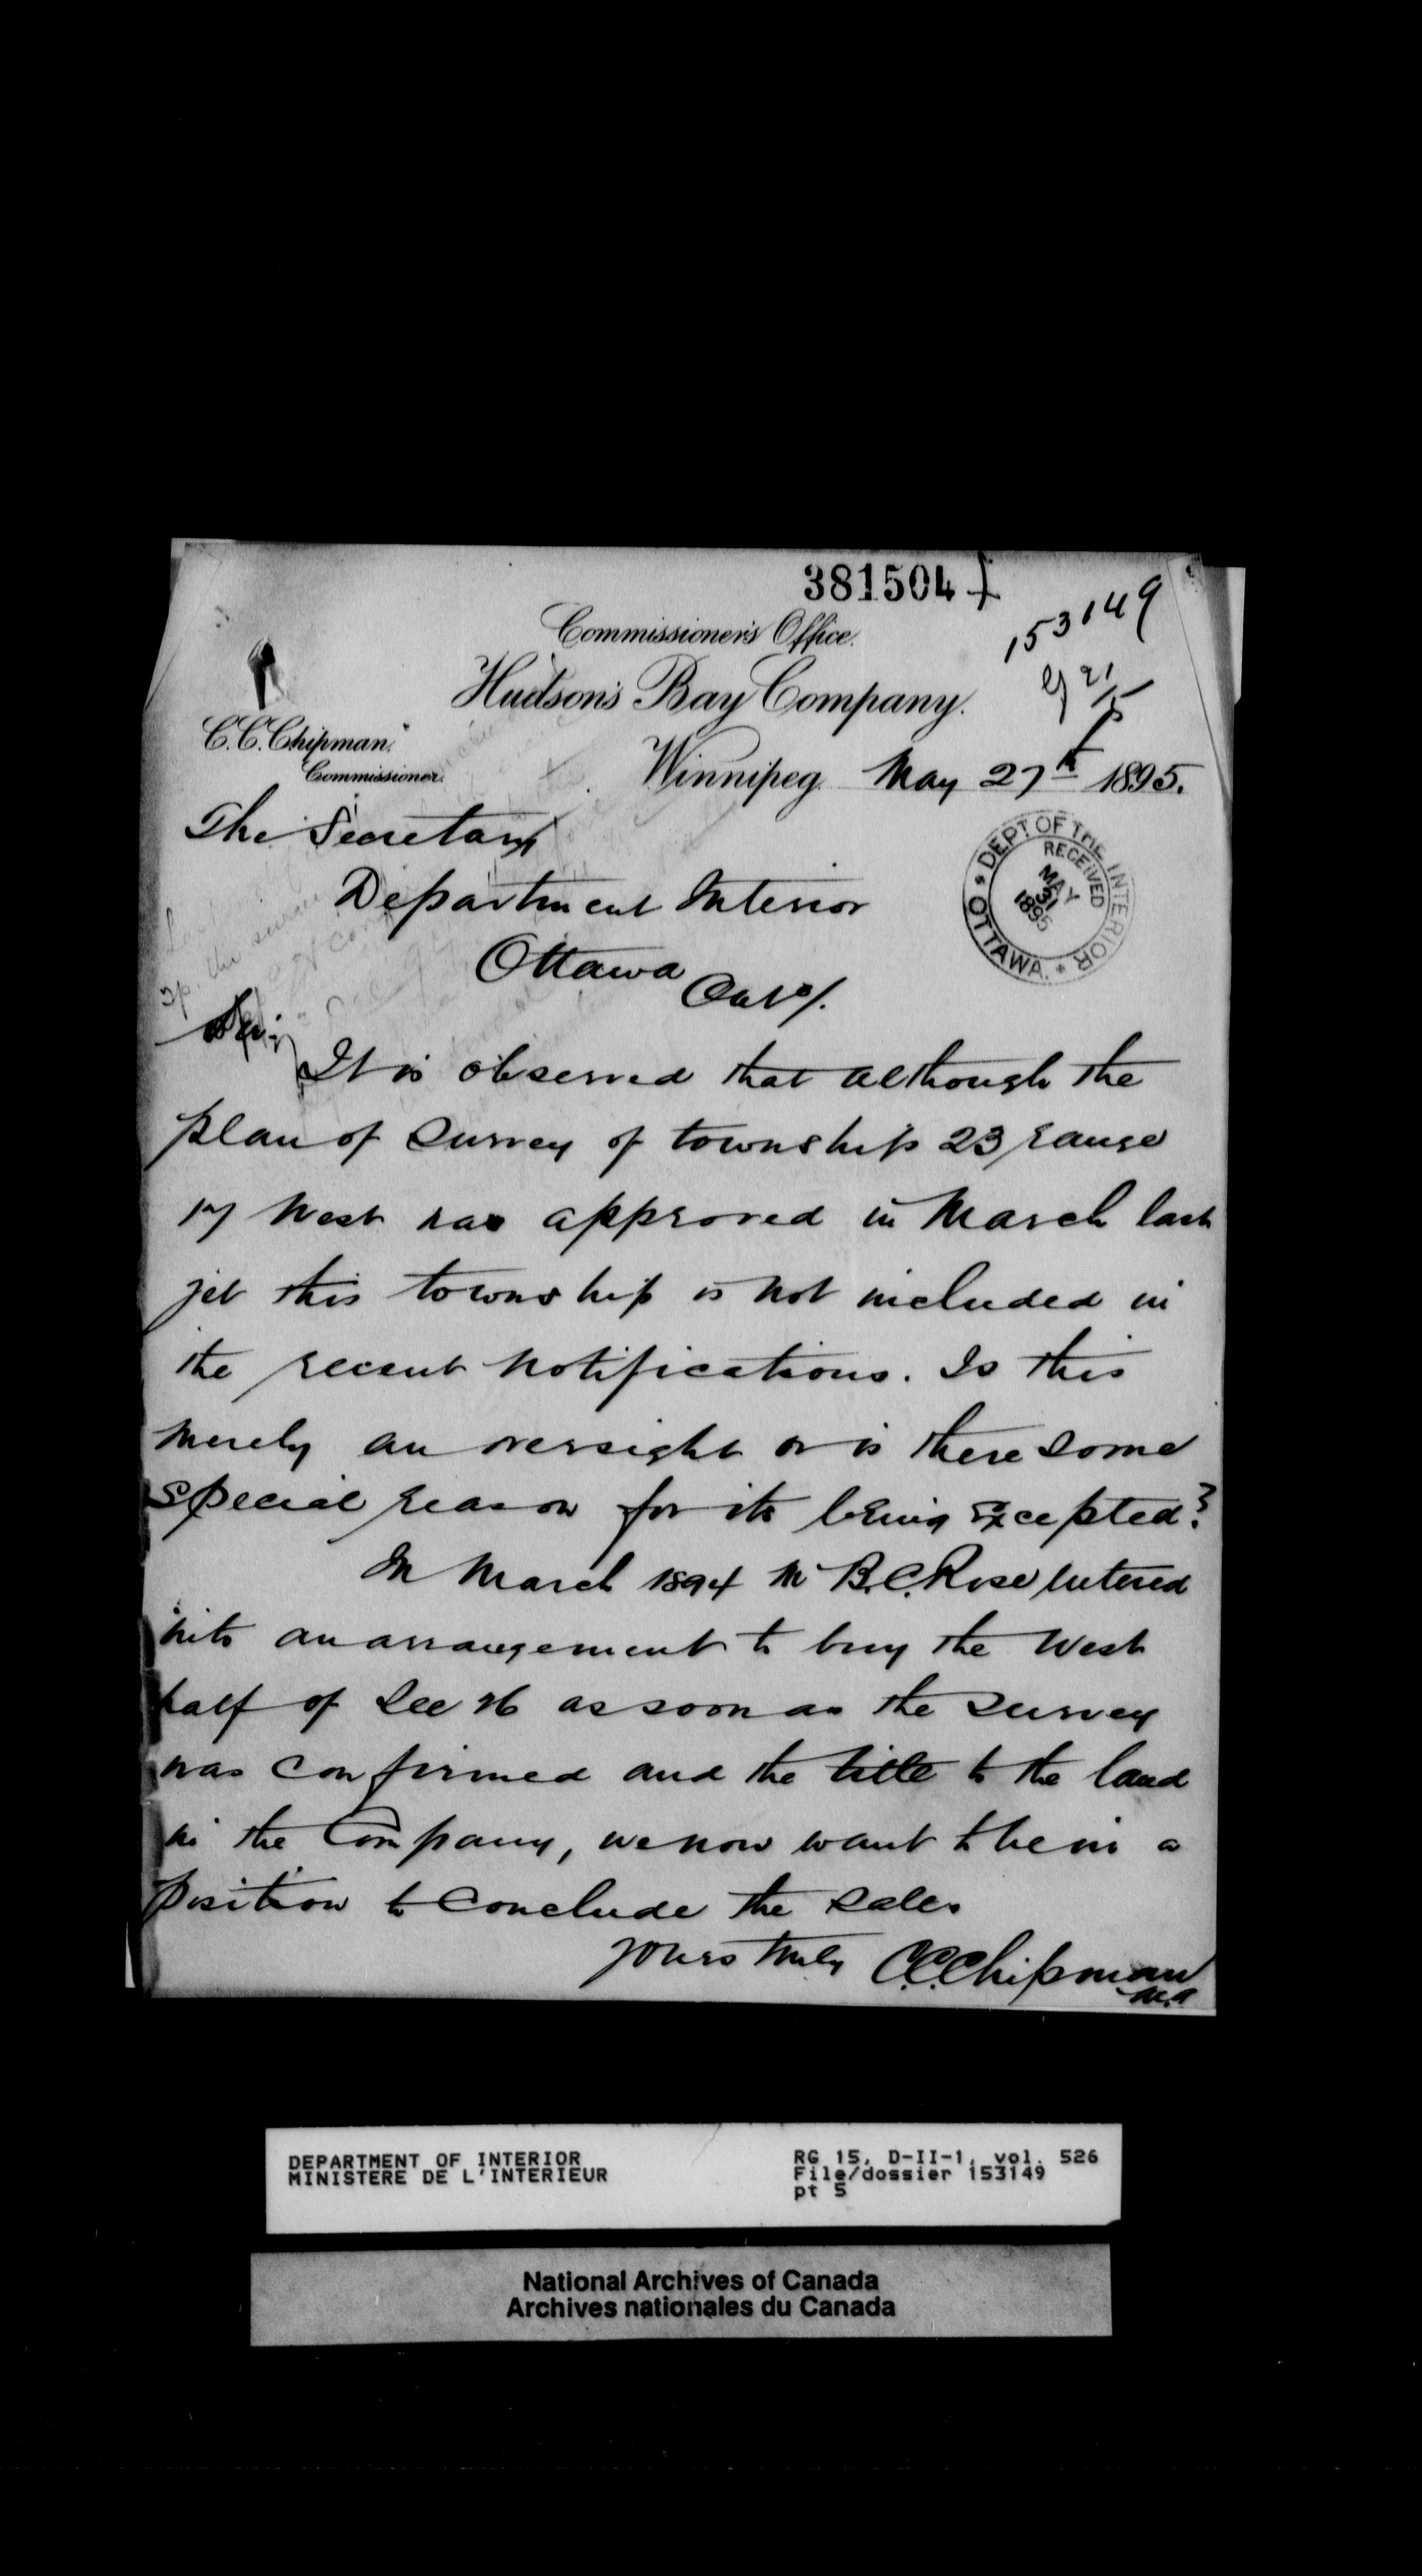 381504
153149
Commissioner's Office.
Hudson's Bay Company.
C.C. Chipman,
Commissioner.
Winnipeg May 27th 1895.
DEPT OF THE INTERIOR
RECEIVED
MAY
31
1895
OTTAWA.
The Secretary
Department Interior
Ottawa
Ont/.
Sir,
It is observed that although the
plan of survey of township 23 range
17 West was approved in March last
yet this township is not included in
the recent notifications. Is this
merely an oversight or is there some
special reason for its being excepted?
In March 1894 Mr B.C. Rose entered
into an arrangement to buy the West
half of Sec 26 as soon as the survey
was confirmed and the title to the land
in the Company, we now want to be in a
position to conclude the sale.
Yours truly C.C. Chipman
DEPARTMENT OF INTERIOR
MINISTERE DE L'INTERIEUR
RG 15, D-II-1, vol. 526
File/dossier 153149
pt 5
National Archives of Canada
Archives nationales du Canada